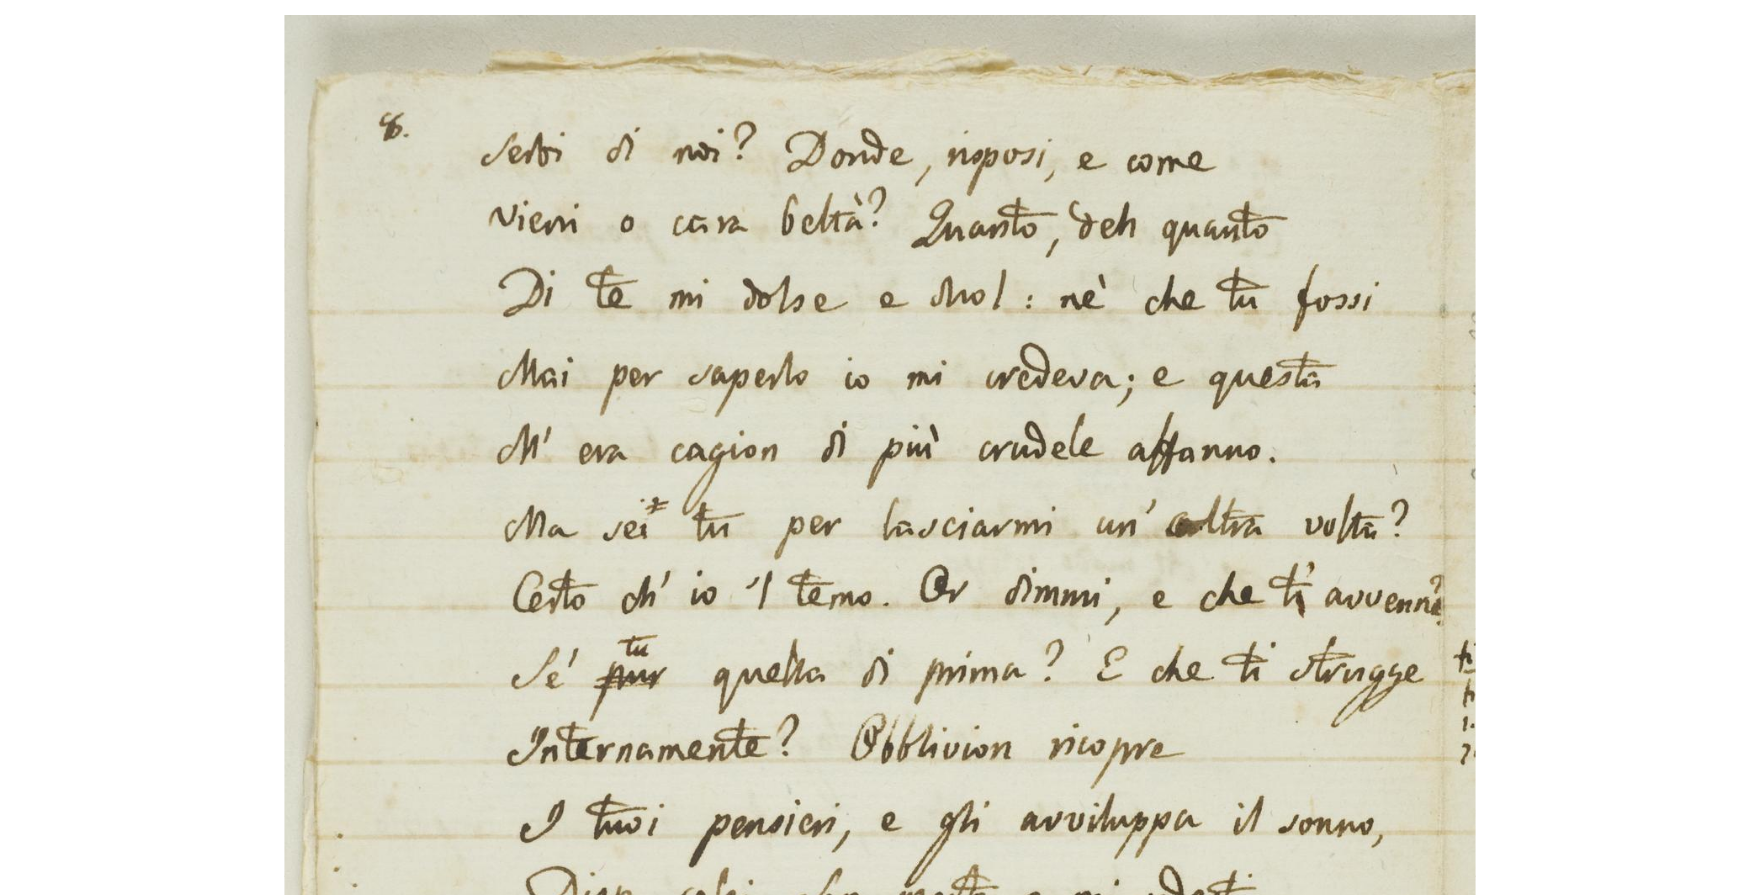 8.
Serbi di noi? Donde, risposi, e come
Vieni o cara beltà? Quanto, deh quanto
Di te mi dolse e duol: nè che tu fossi
Mai per saperlo io mi credeva; e questa
M' era cagion di più crudele affanno.
Ma sei* tu per lasciarmi un' altra volta?
Certo ch' io 'l temo. Or dimmi, e che ti avvenne?
tu
Se' pur quella di prima? E che ti strugge
Internamente? Obblivion ricopre
I tuoi pensieri, e gli avviluppa il sonno,